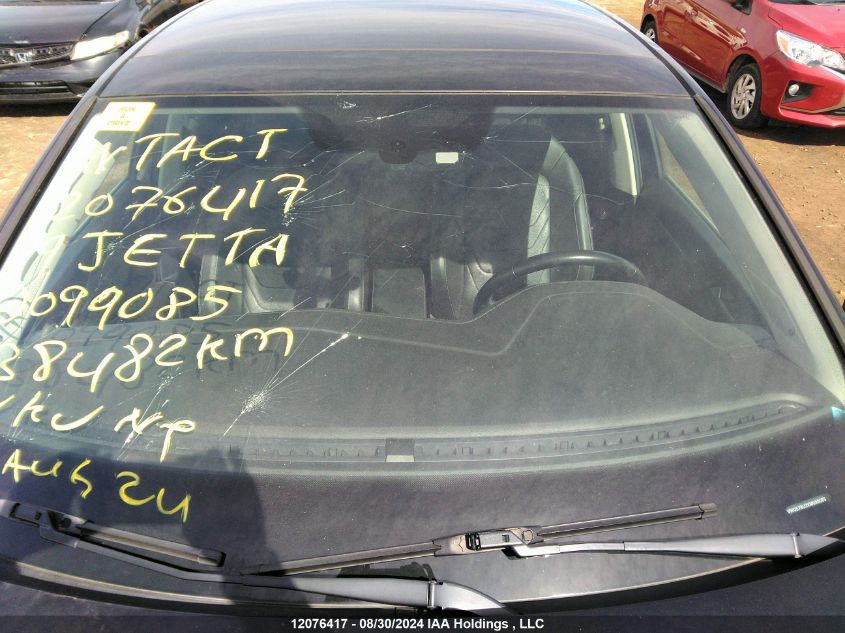 RUN
&
DRIVE
NTACT
2076417
JETTA
099085
38482KM
NP
AUG 24
12076417 - 08/30/2024 IAA Holdings , LLC